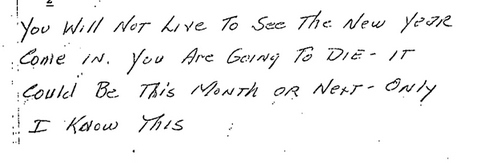 2
You Will Not Live To See The New Year
Come in. You Are Going To DIE - IT
Could Be This Month OR Next - Only
I Know This